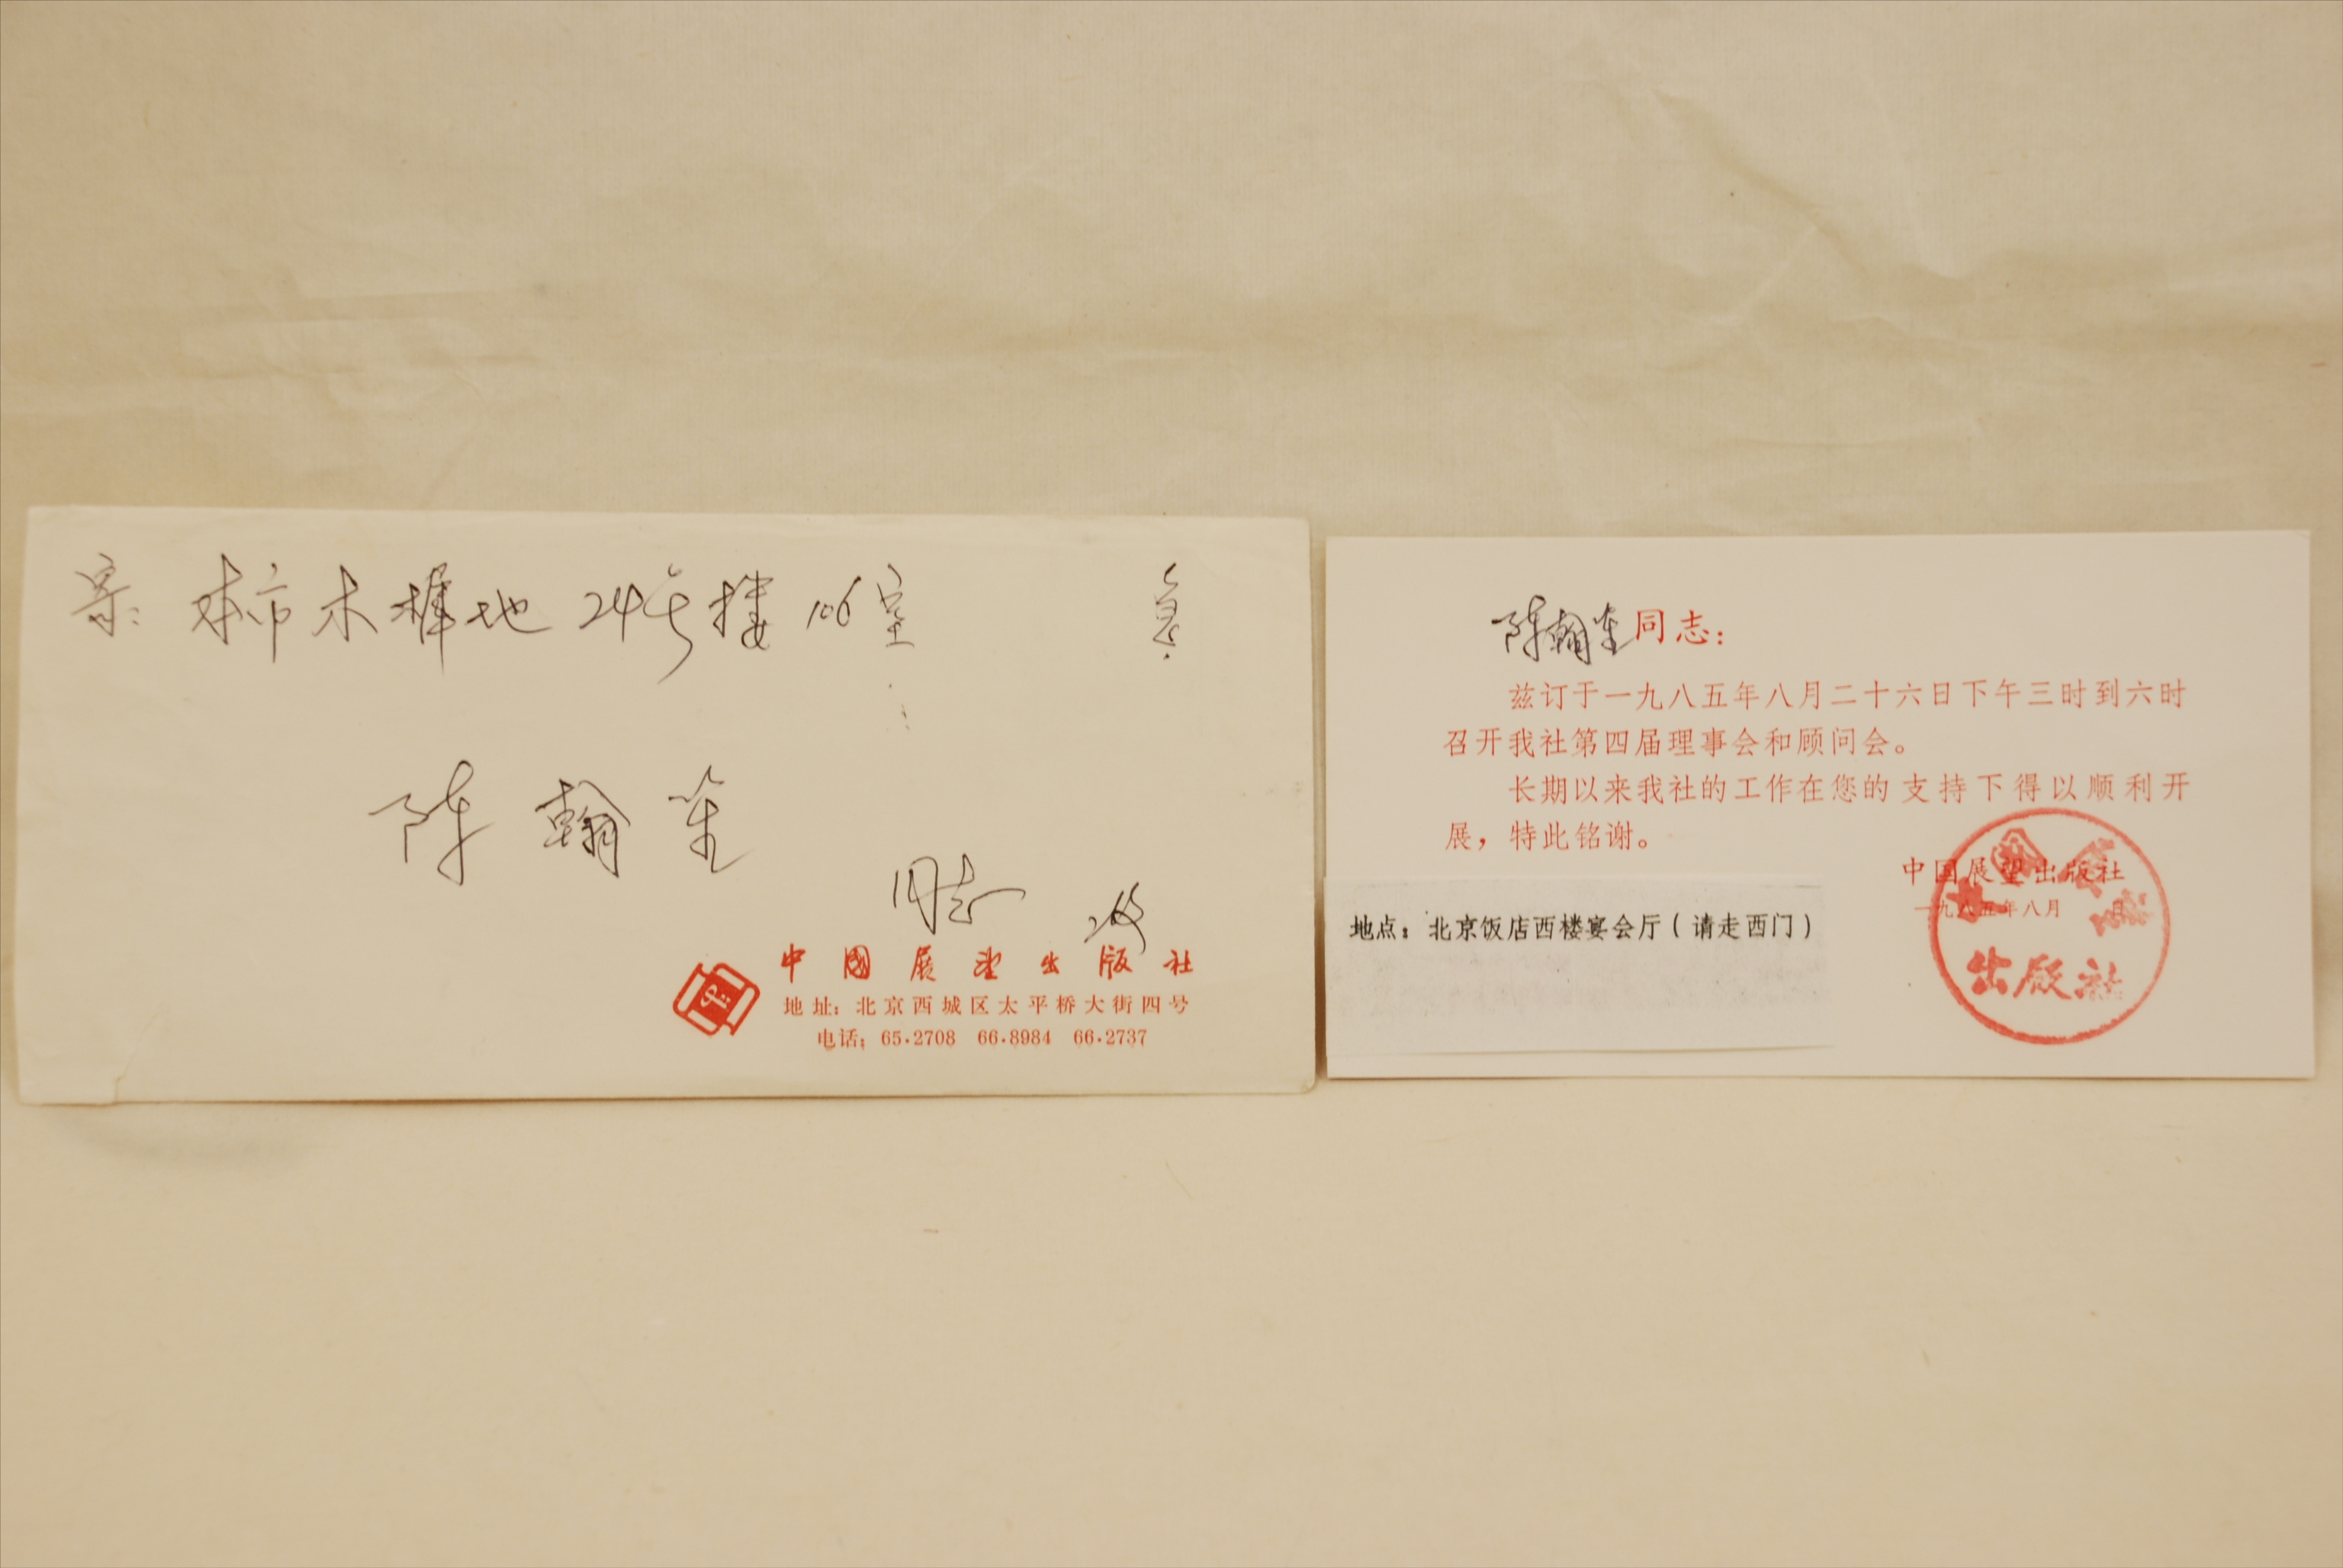 本市木樨地24号楼106室
陈翰笙
同志收
中國展望出版社
地址：北京西城区太平桥大街四号
电话：65.2708 66.8984 66.2737
陈翰笙同志：
兹订于一九八五年八月二十六日下午三时到六时
召开我社第四届理事会和顾问会。
长期以来我社的工作在您的支持下得以顺利开
展，特此铭谢。
中国展望出版社
一九八五年八月 日
地点：北京饭店西楼宴会厅（请走西门）
中國展望
出版社